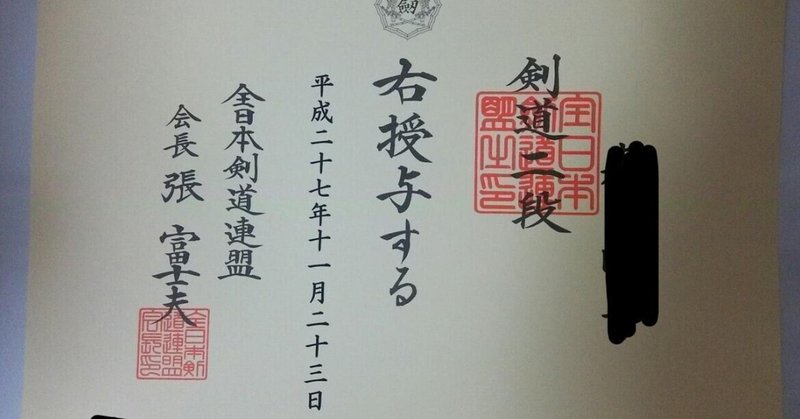 剣道二段
右授与する
平成二十七年十一月二十三日
全日本剣道連盟
会長 張 富士夫
全日本剣道連盟之印
全日本剣道連盟会長印